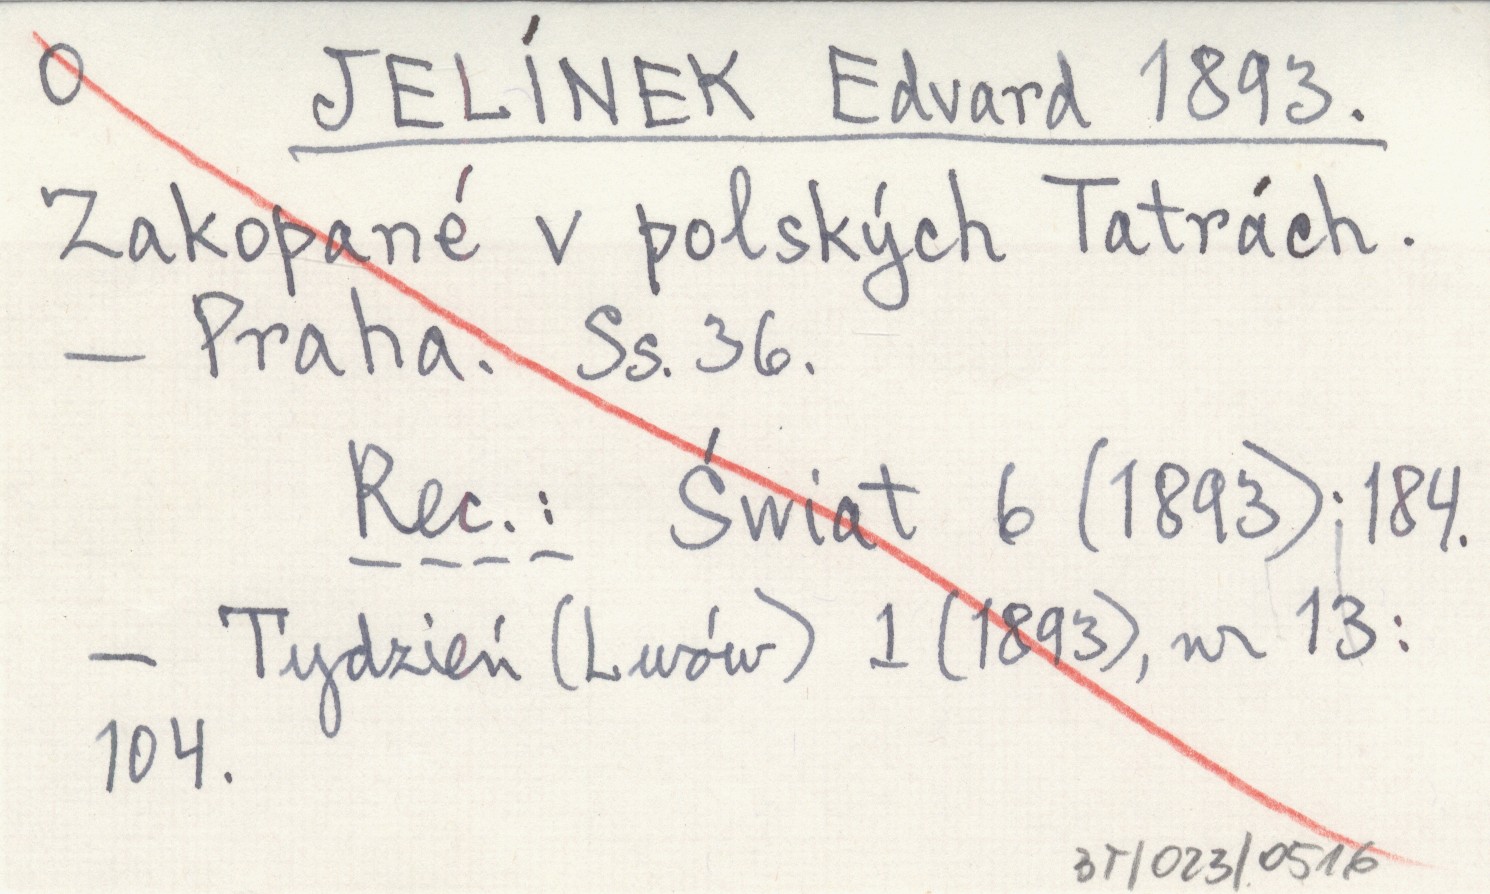 O JELÍNEK Edvard 1893.
Zakopané v polských Tatrách.
— Praha. Ss. 36.
Rec.: Świat 6 (1893): 184.
— Tydzień (Lwów) 1 (1893), nr 13:
104.
BT/023/0516